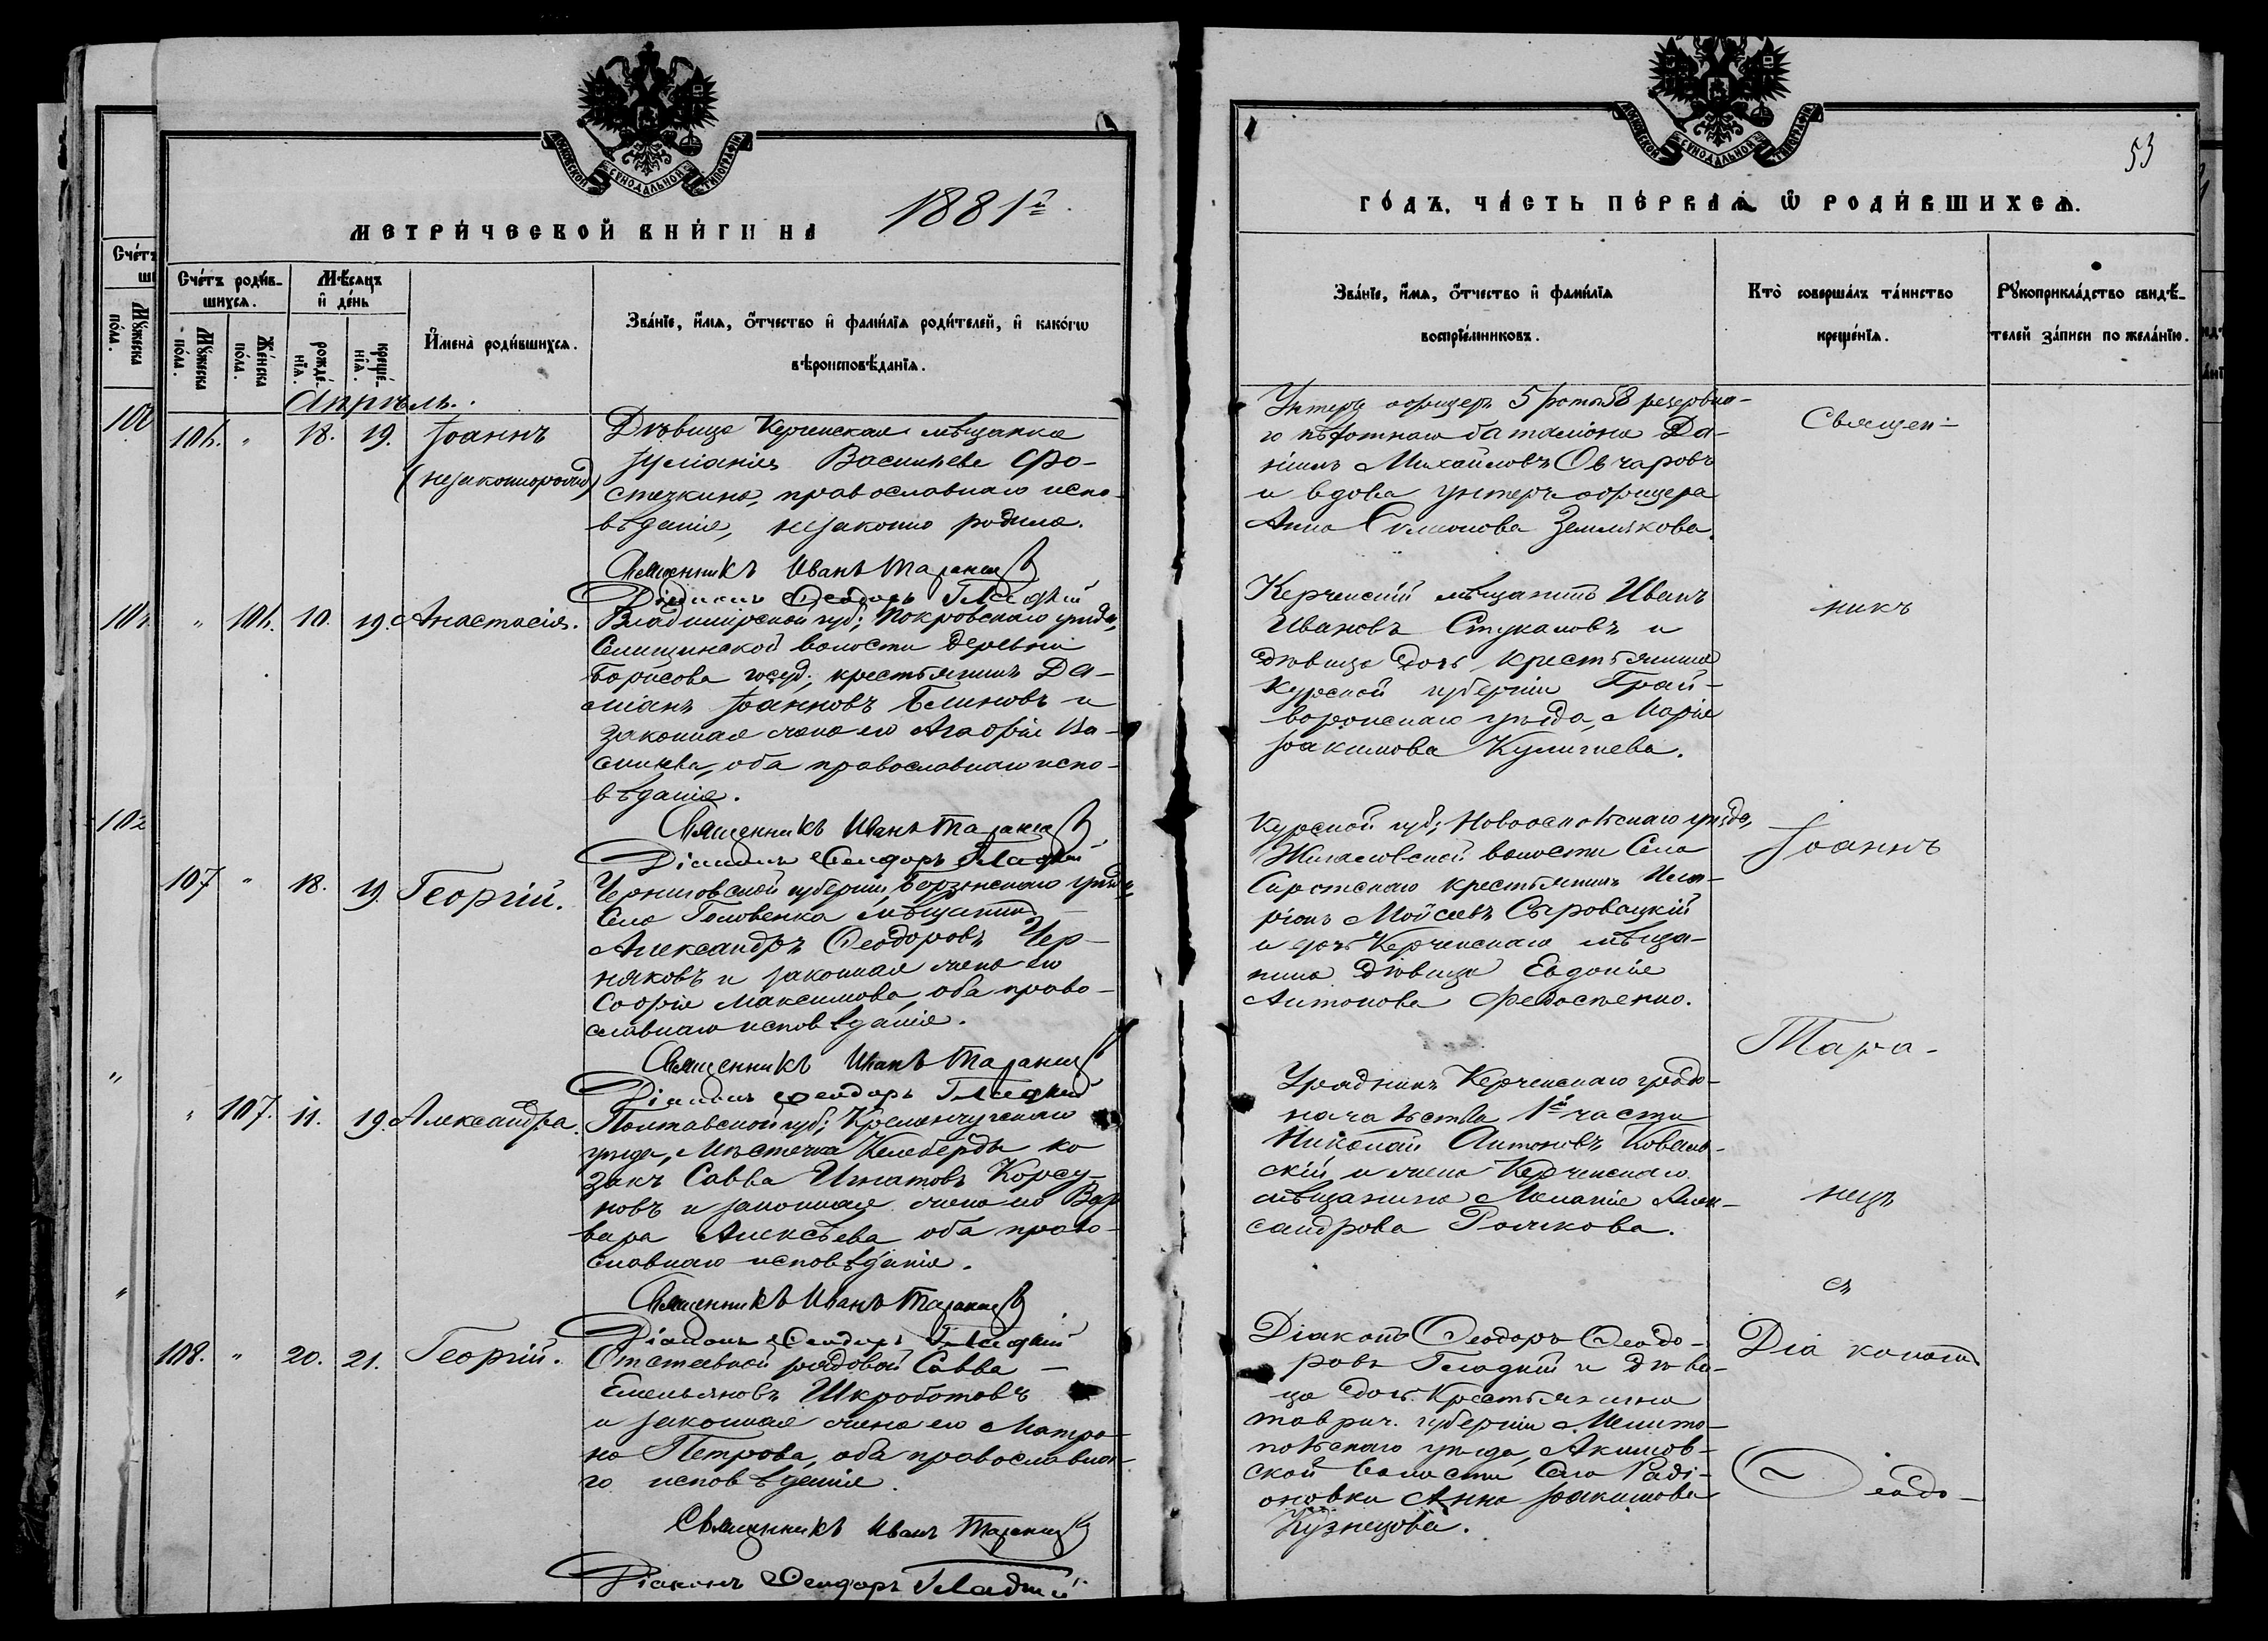 МОСКОВСКОЙ СѴНОДАЛЬНОЙ ТИПОГРАФІИ
МЕТРИ́ЧЕСКОЙ КНИ́ГИ НА 1881й
Сче́тъ роди́в-
шихся.
Мꙋ́жеска по́ла.
Же́нска по́ла.
Мѣ́сяцъ и҆ де́нь
рожде́-
нїѧ.
креще́-
нїѧ.
И҆мена̀ роди́вшихсѧ.
Зва́нїе, и҆́мѧ, ѻ҆́тчество и҆ фами́лїѧ роди́телей, и҆ како́гѡ
вѣроисповѣ́данїѧ.
Апрѣль.
106. " 18. 19. Іоаннъ
(незаконнорожд)
Дѣвица Керченская мѣщанка
Іуліанія Васильева Фо-
стечкина, православнаго испо-
вѣданія, незаконно родила.
Священникъ Иванъ Таранец
Діаконъ Ѳеодоръ Гладкій
" 106. 10. 19. Анастасія.
Владимірской губ; Покровскаго уѣзда,
волости деревни
Борисова госуд; крестьянинъ Да-
міанъ Іоанновъ Блиновъ и
законная жена его Агафія Ва-
сильева, оба православнаго испо-
вѣданія.
Священникъ Иванъ Таранец
Діаконъ Ѳеодоръ Гладкій
107 " 18. 19. Георгій.
Черниговской губерніи, Борзенскаго уѣзда
Села Головенка мѣщанинъ
Александръ Ѳеодоровъ Чер-
няковъ и законная жена его
Софія Максимова, оба право-
славнаго исповѣданія.
Священникъ Иванъ Таранец
Діаконъ Ѳеодоръ Гладкій
" 107. 11. 19. Александра.
Полтавской губ; Кременчугскаго
уѣзда, Мѣстечка Келеберды ко
закъ Савва Игнатовъ Корсу-
новъ и законная жена его Вар
вара Алексѣева оба право-
славнаго исповѣданія.
Священникъ Иванъ Таранец
Діаконъ Ѳеодоръ Гладкій
108. " 20. 21. Георгій.
Отставной рядовой Савва
Емельяновъ Шкроботовъ
и законная жена его Матро-
на Петрова, оба православна-
го исповѣданія.
Священникъ Иванъ Таранец
Діаконъ Ѳеодоръ Гладкій
53
МОСКОВСКОЙ СѴНОДАЛЬНОЙ ТИПОГРАФІИ
ГО́ДЪ, ЧА́СТЬ ПЕ́РВАѦ Ѡ РОДИ́ВШИХСѦ.
Зва́нїе, и҆́мѧ, ѻ҆́тчество и҆ фами́лїѧ
воспрїе́мниковъ.
Кто̀ соверша́лъ та́инство
креще́нїѧ.
Рꙋкоприкла́дство свидѣ́-
телей за́писи по жела́нїю.
Унтеръ офицеръ 5 роты 58 резервна-
го пѣхотнаго баталіона Да-
ніилъ Михайловъ Овчаровъ
и вдова унтеръ офицера
Анна Симонова Землякова.
Керченскій мѣщанинъ Иванъ
Ивановъ Стукаловъ и
дѣвица дочь крестьянина
Курской губерніи Грай-
воронскаго уѣзда, Марія
Іоакимова Куличнева.
Курской губ; Новооскольскаго уѣзда,
волости Села
крестьянинъ Ила-
ріонъ Мойсеевъ Сыровацкій
и дочь Керченскаго мѣща-
нина дѣвица Евдокія
Антонова
Урядникъ Керченскаго градо-
начальства 1й части
Николай Антоновъ Коваль-
скій и жена Керченскаго
мѣщанина Меланія Алек-
сандрова
Діаконъ Ѳеодоръ Ѳеодо-
ровъ Гладкій и дѣви-
ца дочь Крестьянина
таврич. губерніи Мелито-
польскаго уѣзда, Акимов-
ской волости Села Раді-
оновки Анна Іоакимова
Кузнецова.
Священ-
никъ
Іоаннъ
Тара-
нецъ
съ
Діакономъ
Ѳеодо-